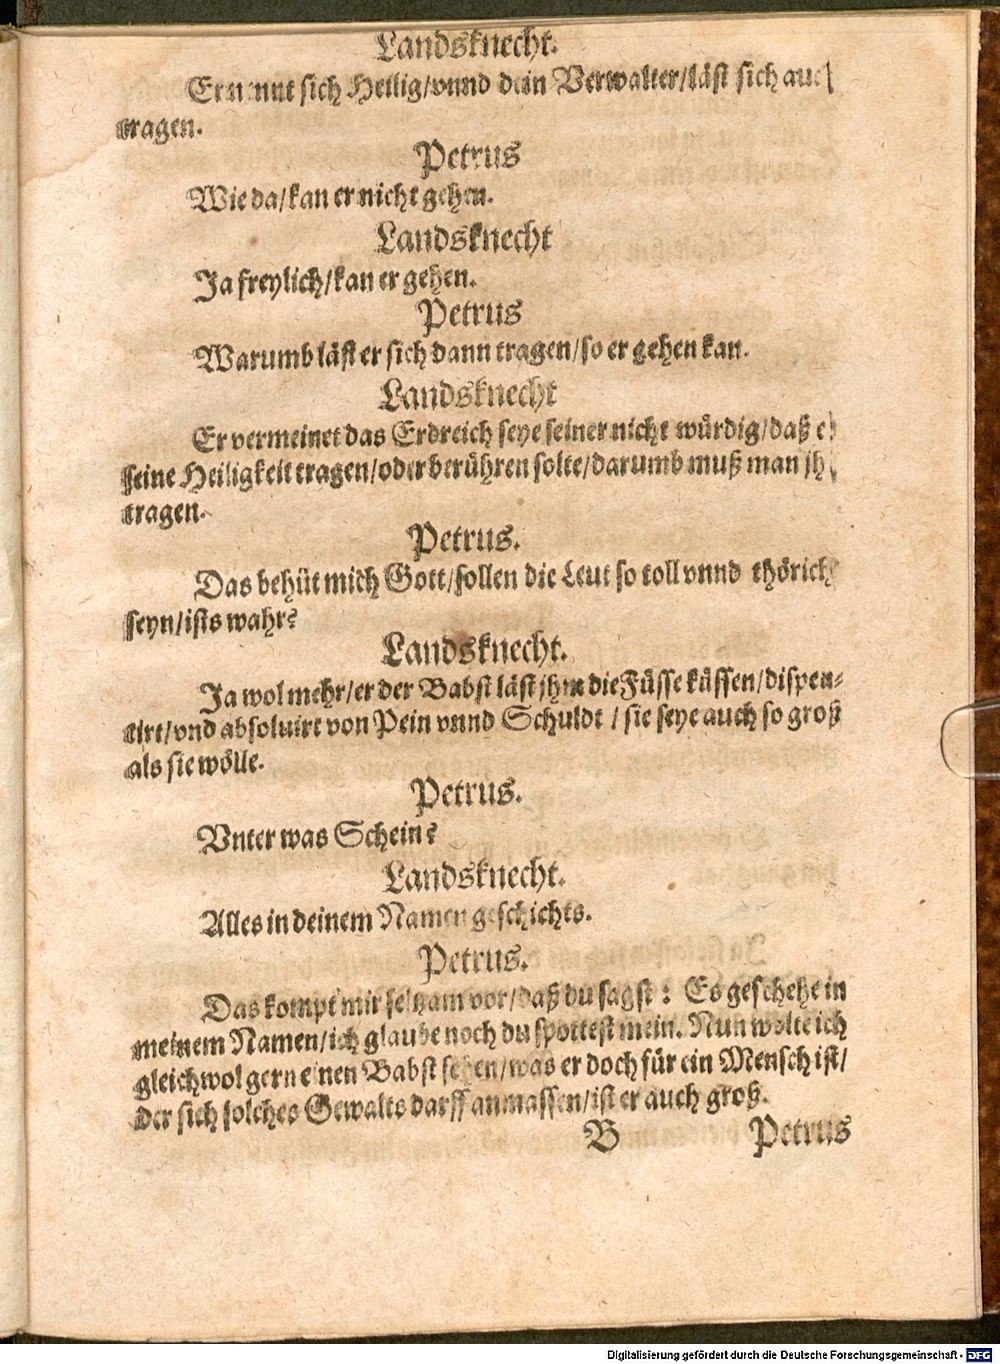 Landsknecht.
Er nennt sich Heilig/vnnd dein Verwalter/läst sich auch
tragen.
Petrus
Wie da/kan er nicht gehen.
Landsknecht
Ja freylich/kan er gehen.
Petrus
Warumb läst er sich dann tragen/so er gehen kan.
Landsknecht
Er vermeinet das Erdreich seye seiner nicht würdig/daß es
seine Heiligkeit tragen/oder berühren solte/darumb muß man jhn
tragen.
Petrus.
Das behüt mich Gott/sollen die Leut so toll vnnd thörich
seyn/ists wahr?
Landsknecht.
Ja wol mehr/er der Babst läst jhm die Füsse küssen/dispen-
sirt/vnd absoluirt von Pein vnnd Schuldt / sie seye auch so groß
als sie wölle.
Petrus.
Vnter was Schein?
Landsknecht.
Alles in deinem Namen geschichts.
Petrus.
Das kompt mir seltzam vor/daß du sagst : Es geschehe in
meinem Namen/ich glaube noch du spottest mein. Nun wolte ich
gleichwol gern einen Babst sehen/was er doch für ein Mensch ist/
der sich solches Gewalts darff anmassen/ist er auch groß.
B Petrus
Digitalisierung gefördert durch die Deutsche Forschungsgemeinschaft - DFG